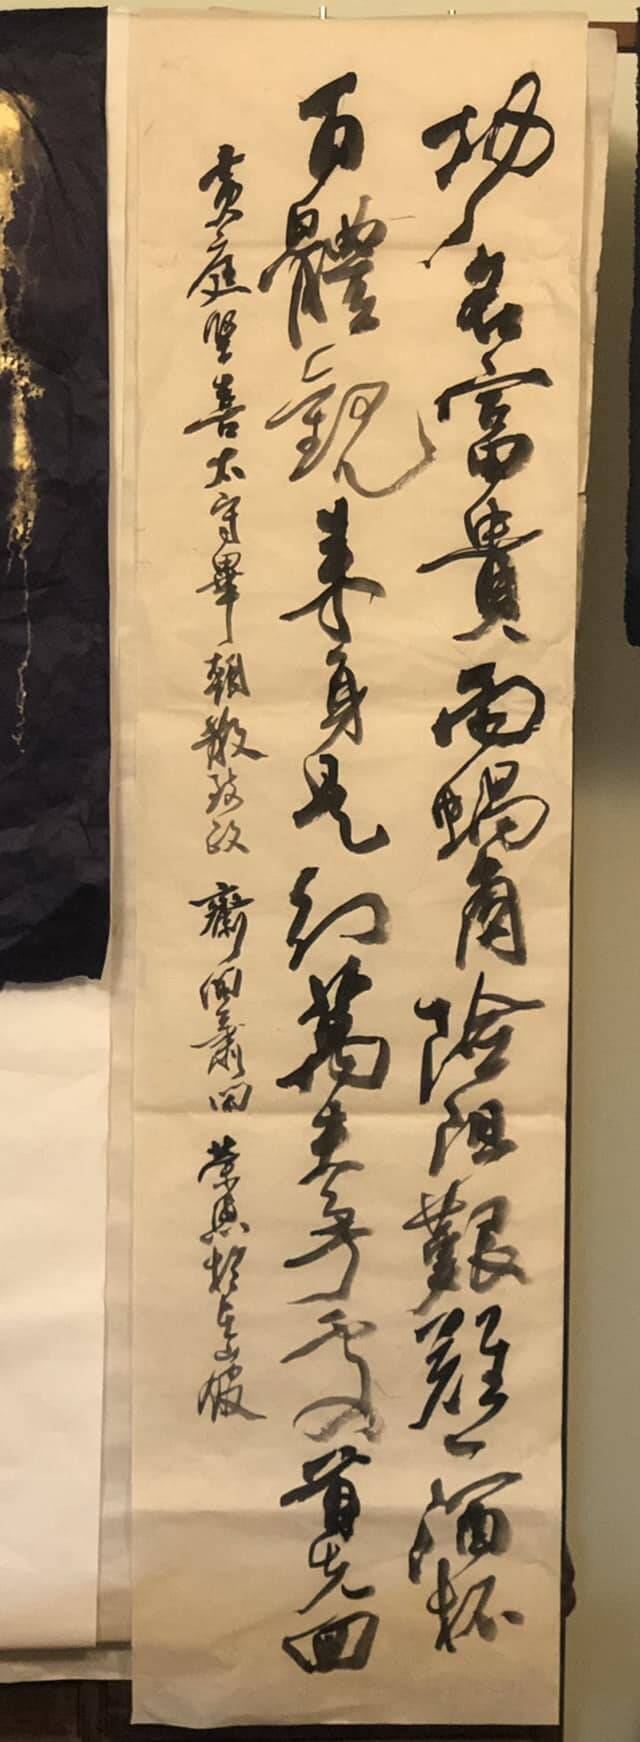 功名富貴兩蝸角險阻艱難一酒杯
百體觀來身是幻萬夫爭處首先回
黃庭堅喜太守畢朝散致政